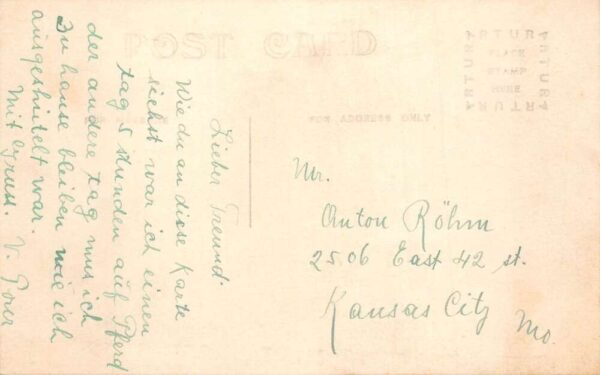 POST CARD
ARTURA
PLACE
STAMP
HERE
ARTURA
ARTURA
ARTURA
FOR ADDRESS ONLY
Lieber Freund.
Wie du an diese Karte
siehst war ich einen
tag 5 stunden auf Pferd
der andere tag mus ich
Zu hause bleiben wie ich
ausgeshütelt war.
Mit Gruss. V.
Mr.
Anton Röhm
2506 East 42 st.
Kansas City Mo.